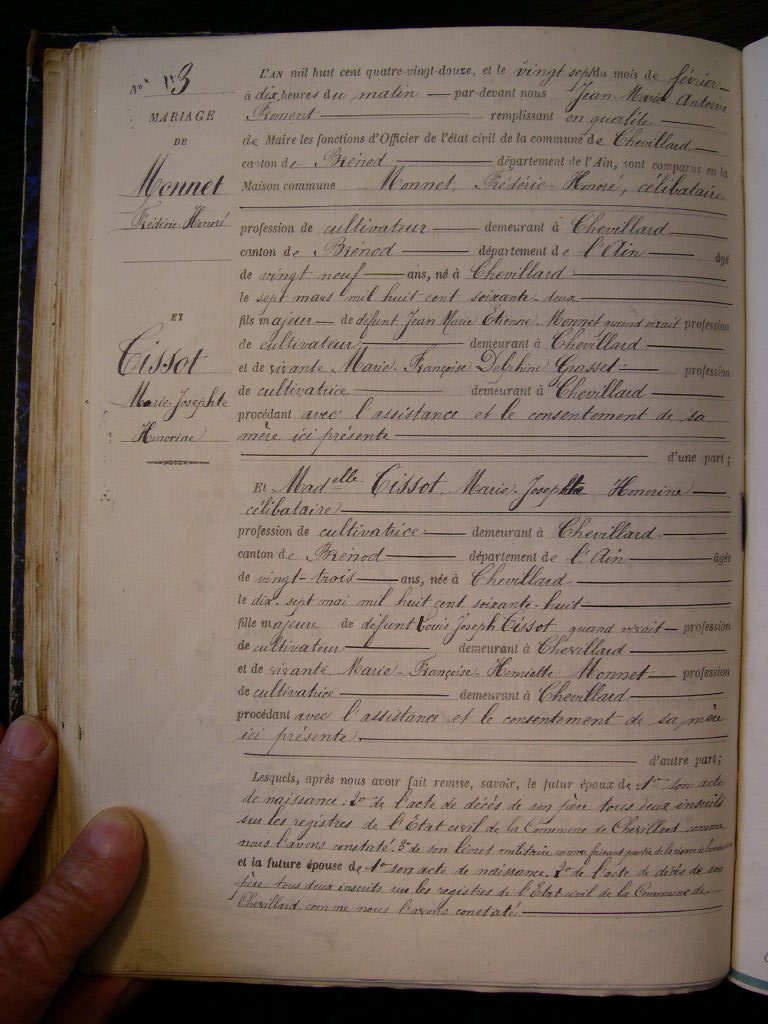 No 3
MARIAGE
DE
Monnet
Frédéric Honoré
ET
Tissot
Marie-Josephte
Honorine
L'AN mil huit cent quatre-vingt-douze, et le vingt sept du mois de février
à dix heures du matin par-devant nous Jean-Marie Antoine
Froment remplissant en qualité
de Maire les fonctions d'Officier de l'état civil de la commune de Chevillard
canton de Brénod département de l'Ain, sont comparus en la
Maison commune Monnet, Frédéric-Honoré, célibataire
profession de cultivateur demeurant à Chevillard
canton de Brénod département de l'Ain âgé
de vingt neuf ans, né à Chevillard
le sept mars mil huit cent soixante-deux
fils majeur de défunt Jean Marie Etienne Monnet quand vivait profession
de cultivateur demeurant à Chevillard
et de vivante Marie-Françoise Delphine Grasset profession
de cultivatrice demeurant à Chevillard
procédant avec l'assistance et le consentement de sa
mère ici présente
d'une part;
Et Madelle Tissot, Marie-Josephte Honorine
célibataire
profession de cultivatrice demeurant à Chevillard
canton de Brénod département de l'Ain âgée
de vingt-trois ans, née à Chevillard
le dix-sept mai mil huit cent soixante-huit
fille majeure de défunt Louis Joseph Tissot quand vivait profession
de cultivateur demeurant à Chevillard
et de vivante Marie-Françoise-Henriette Monnet profession
de cultivatrice demeurant à Chevillard
procédant avec l'assistance et le consentement de sa mère
ici présente
d'autre part;
Lesquels, après nous avoir fait remise, savoir, le futur époux de 1o son acte
de naissance. 2o de l'acte de décès de son père tous deux inscrits
sur les registres de l'Etat civil de la Commune de Chevillard comme
nous l'avons constaté. 3o de son livret militaire comme faisant partie de la
et la future épouse de 1o son acte de naissance. 2o de l'acte de décès de son
père tous deux inscrits sur les registres de l'Etat civil de la Commune de
Chevillard comme nous l'avons constaté